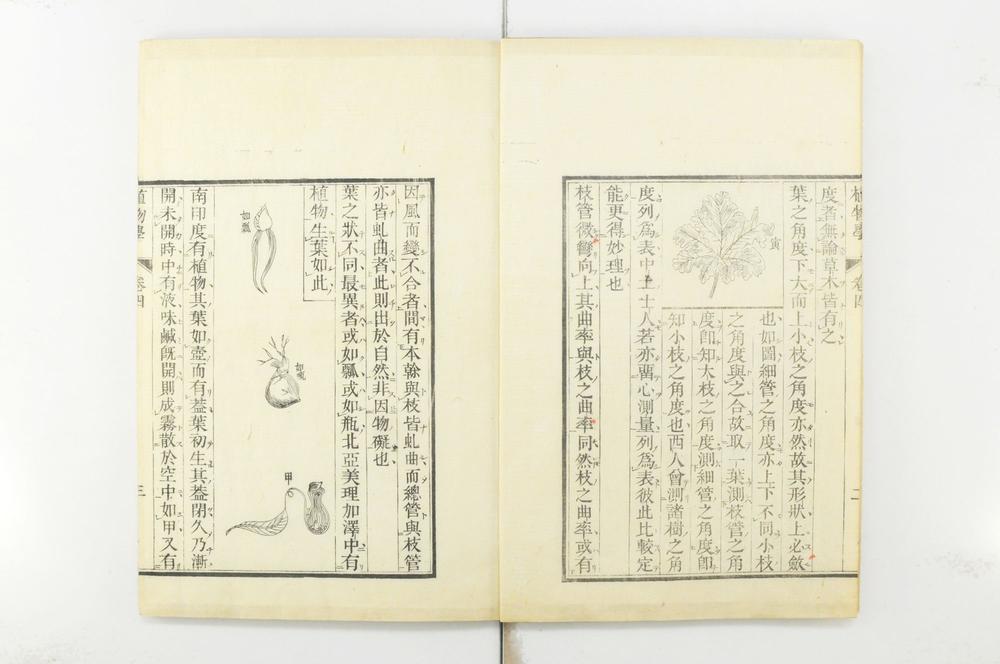 植物學 卷四 二
度者無論草木皆有之
葉之角度下大而上小枝之角度亦然故其形狀上必斂
寅
也如圖細管之角度亦上下不同小枝
之角度與之合故取一葉測枝管之角
度卽知大枝之角度測細管之角度卽
知小枝之角度也西人曾測諸樹之角
度列爲表中土士人若亦畱心測量列爲表彼此比較定
能更得妙理也
枝管微彎向上其曲率與枝之曲率同然枝之曲率或有
因風而變不合者間有本幹與枝皆虬曲而總管與枝管
亦皆虬曲者此則出於自然非因物礙也
葉之狀不同最異者或如瓢或如瓶北亞美理加澤中有
植物生葉如此
如瓢
如瓶
甲
南印度有植物其葉如壺而有葢葉初生其葢閉久乃漸
開未開時中有液味鹹旣開則成霧散於空中如甲又有
植物學 卷四 三